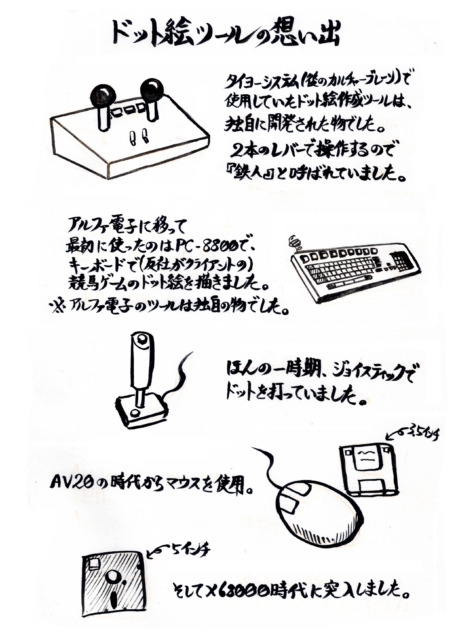 ドット絵ツールの想い出
タイヨーシステム(後のカルチャーブレーン)で
使用していたドット絵作成ツールは、
独自に開発された物でした。
2本のレバーで操作するので
『鉄人』と呼ばれていました。
アルファ電子に移って
最初に使ったのはPC-8800で、
キーボードで(反社がクライアントの)
競馬ゲームのドット絵を描きました。
※アルファ電子のツールは独自の物でした。
ほんの一時期、ジョイスティックで
ドットを打っていました。
3.5インチ
AV20の時代からマウスを使用。
5インチ
そしてX68000時代に突入しました。